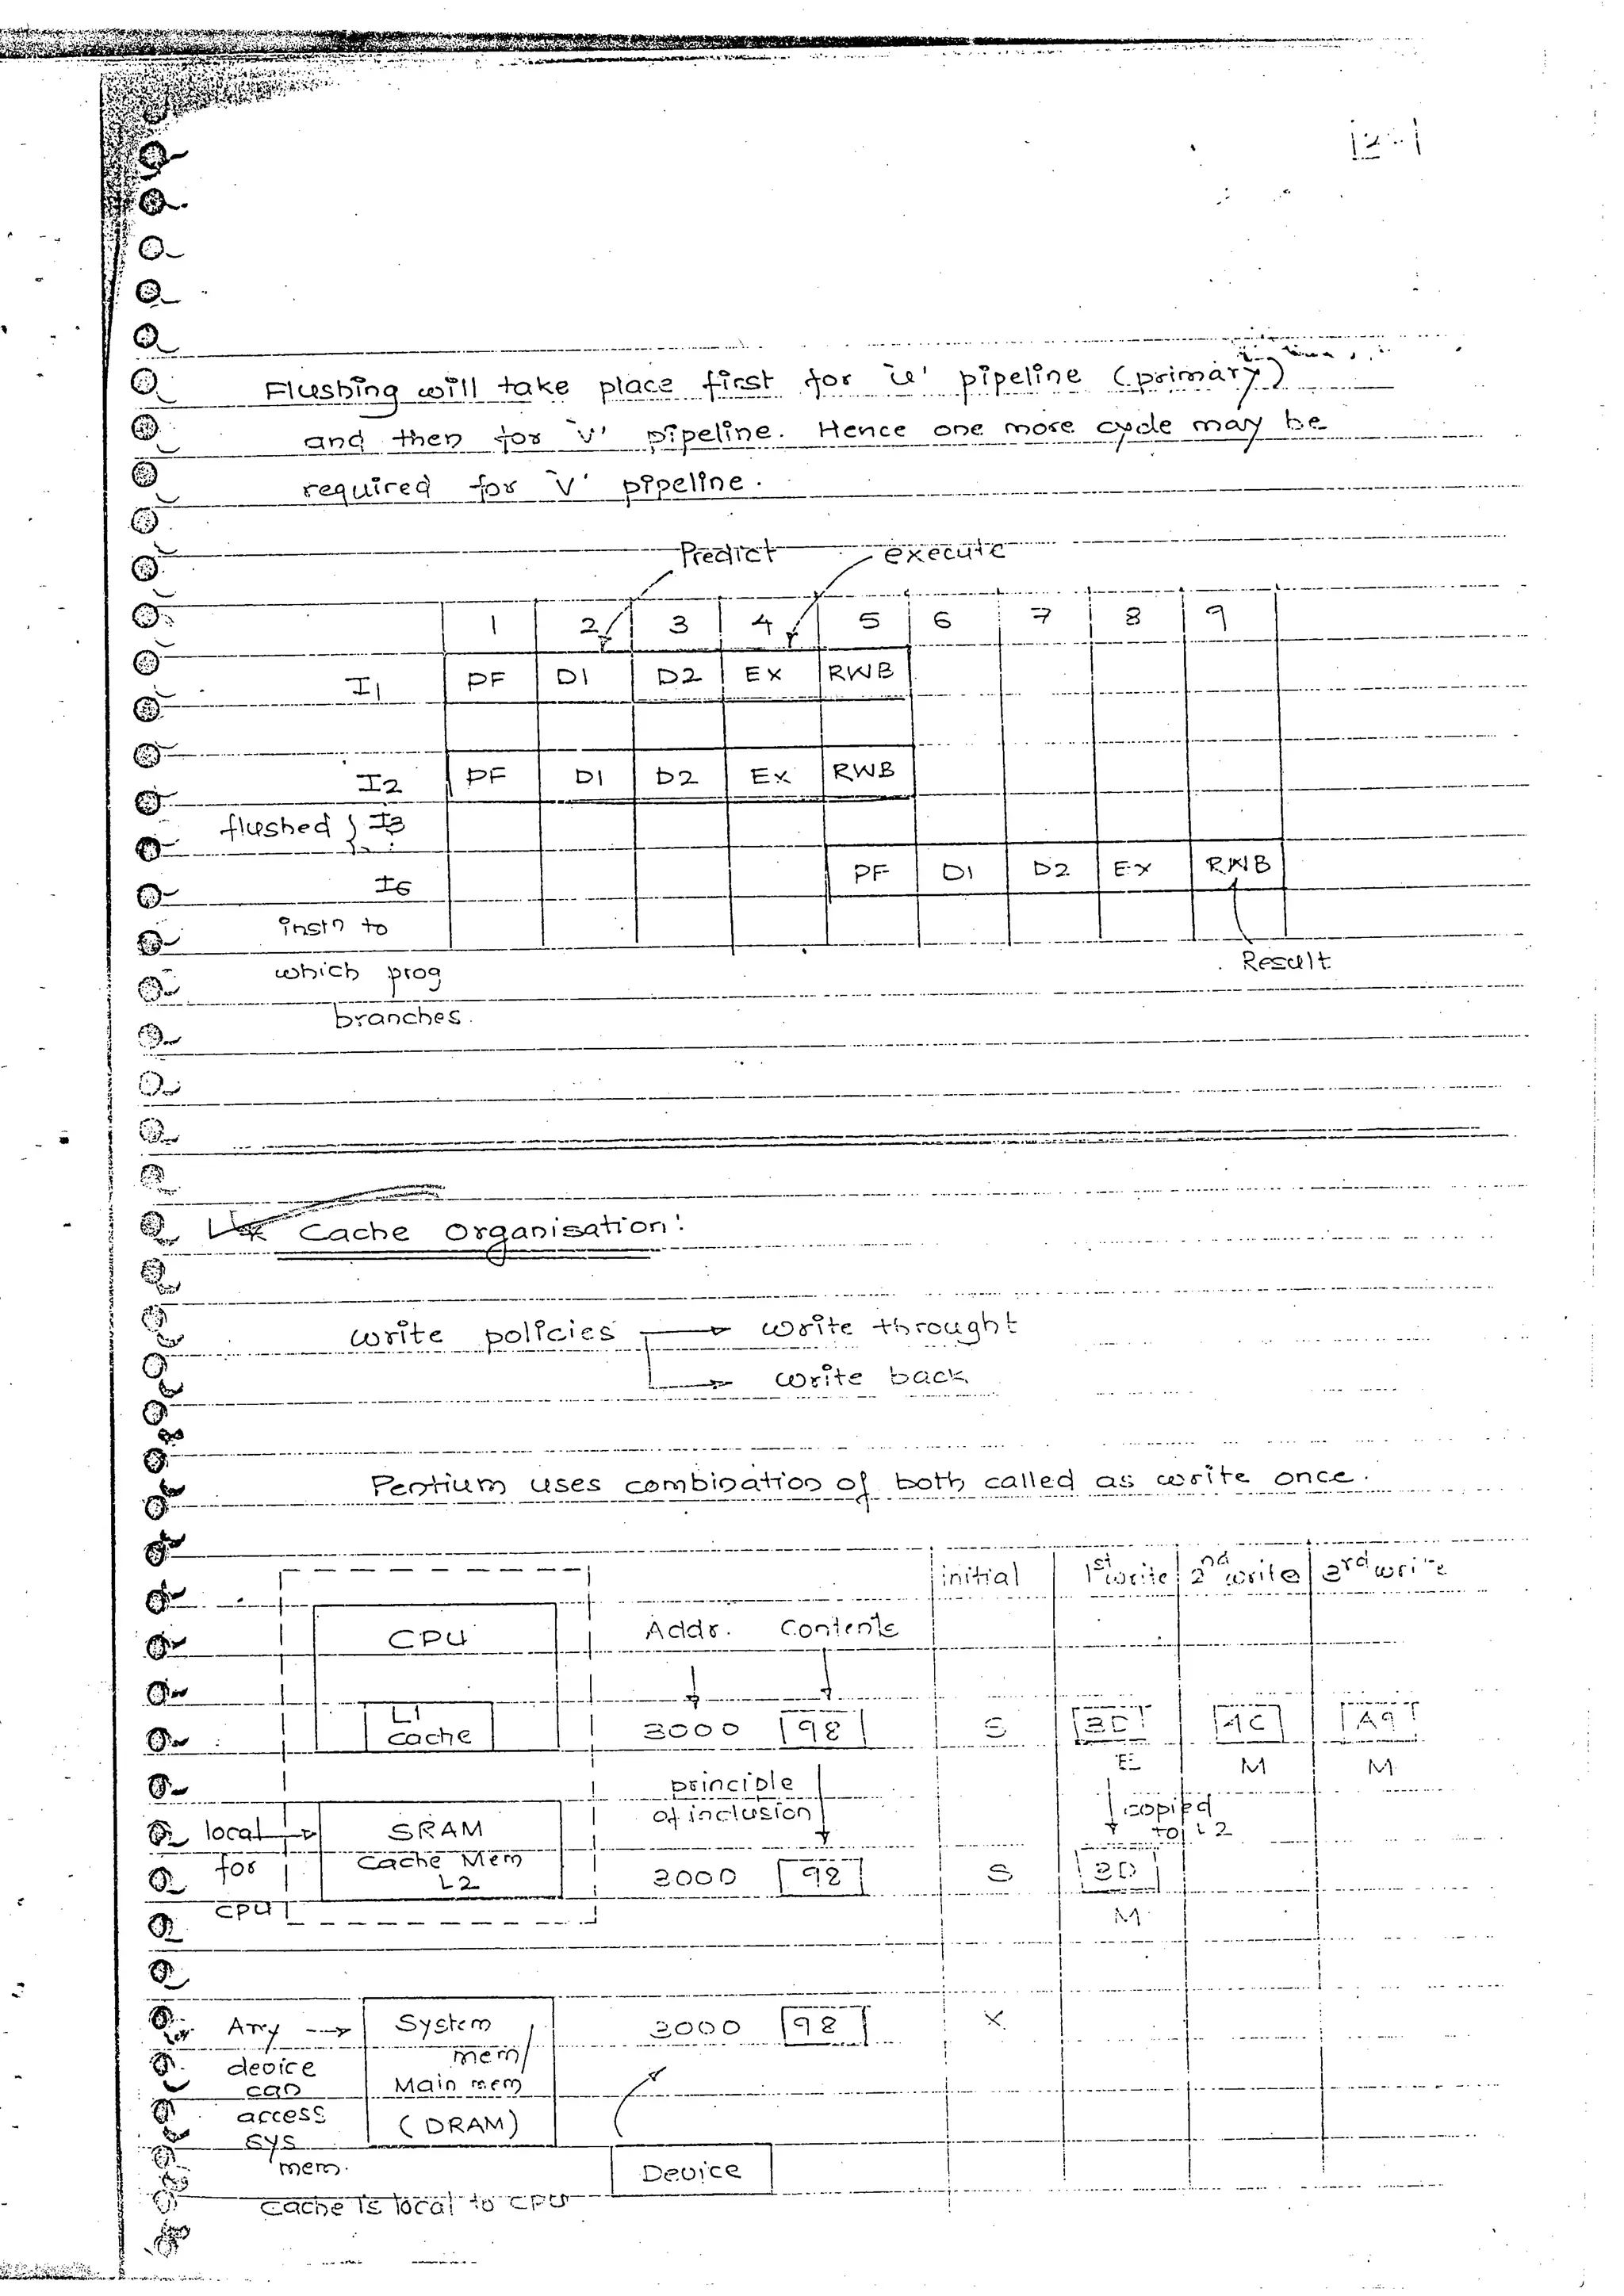 Flushing will take place first for 'u' pipeline (primary)
and then for 'v' pipeline. Hence one more cycle may be
required for 'v' pipeline.
Predict execute
1 2 3 4 5 6 7 8 9
I1 PF D1 D2 EX RWB
I2 PF D1 D2 EX RWB
flushed } I3
I6 PF D1 D2 EX RWB
instn to
which prog Result
branches.
* Cache Organisation:
write policies → write throught
→ write back
Pentium uses combination of both called as write once.
initial 1st write 2nd write 3rd write
CPU Addr. Contents
L1
cache 3000 98 S 3D 4C A9
E M M
principle
of inclusion copied
to L2
local → SRAM
for Cache Mem
L2 3000 98 S 3D
CPU M
Any → System 3000 98 X
device mem/
can Main mem
access (DRAM)
sys
mem. Device
cache is local to CPU